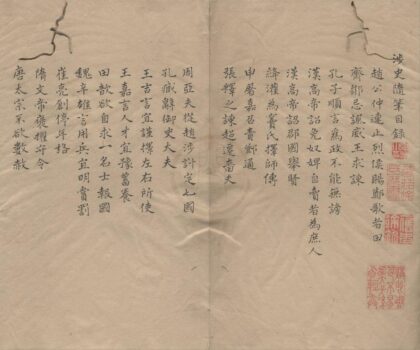 涉史隨筆目録
趙公仲連止烈侯賜歌者田
齊鄒忌諷威王求諫
孔子順言為政不能無謗
漢高帝詔免奴婢自賣者為庶人
漢高帝詔郡國舉賢
絳灌為竇氏擇師傅
申屠嘉召責鄧通
張釋之諫超遷嗇夫
周亞夫從趙涉計定七國
孔臧辭御史大夫
王吉言宜謹擇左右所使
王嘉言人才宜豫蓄養
田歆欲自求一名士報國
魏辛雄言用兵宜明賞罰
崔亮創停年格
隋文帝褒擢守令
唐太宗不欲數赦